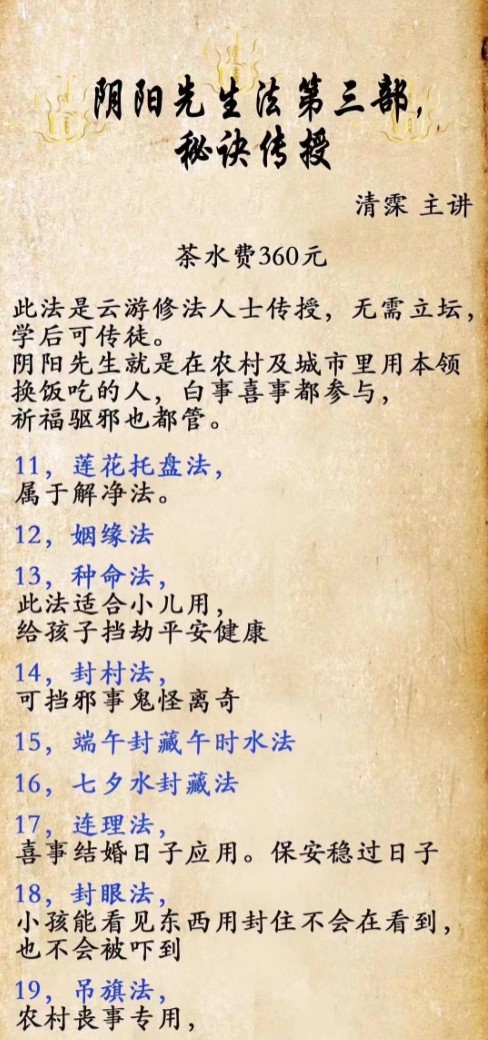 阴阳先生法第三部，
秘诀传授
清霂 主讲
茶水费360元
此法是云游修法人士传授，无需立坛，
学后可传徒。
阴阳先生就是在农村及城市里用本领
换饭吃的人，白事喜事都参与，
祈福驱邪也都管。
11，莲花托盘法，
属于解净法。
12，姻缘法
13，种命法，
此法适合小儿用，
给孩子挡劫平安健康
14，封村法，
可挡邪事鬼怪离奇
15，端午封藏午时水法
16，七夕水封藏法
17，连理法，
喜事结婚日子应用。保安稳过日子
18，封眼法，
小孩能看见东西用封住不会在看到，
也不会被吓到
19，吊旗法，
农村丧事专用，